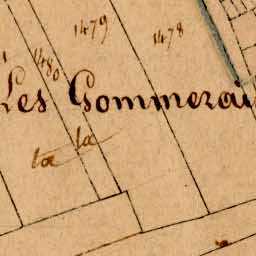 1479
1478
1480
Les Gommerai
la la